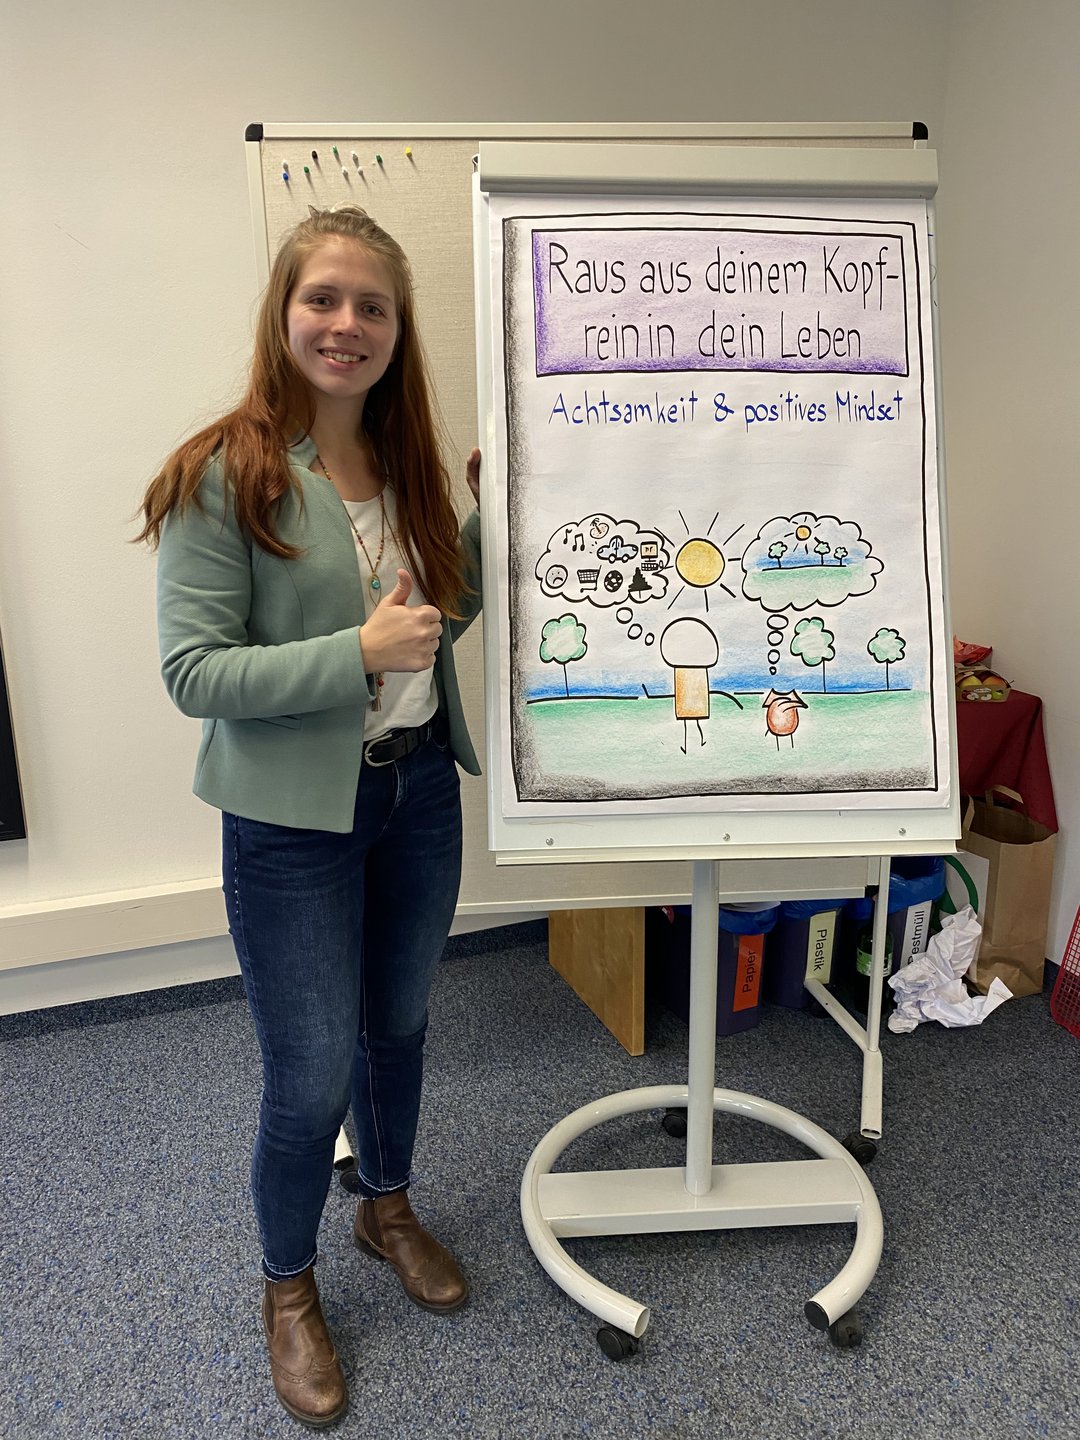 Raus aus deinem Kopf-
rein in dein Leben
Achtsamkeit & positives Mindset
Papier
Plastik
Restmüll